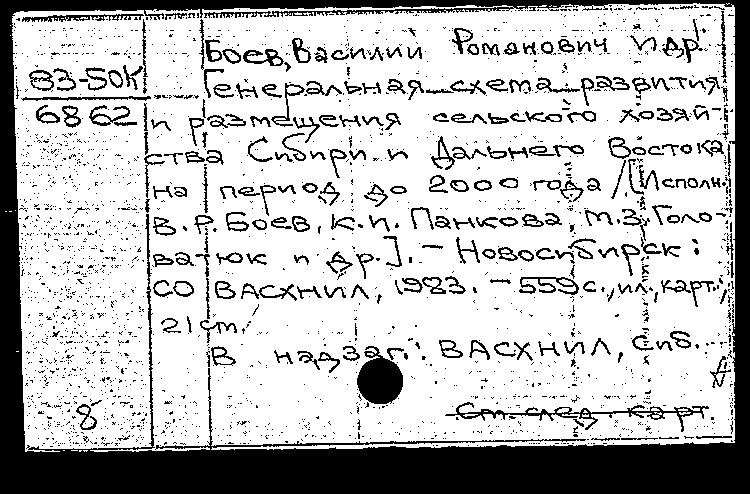 Боев, Василий Романович и др.
83-50К
6862
Генеральная схема развития
и размещения сельского хозяй-
ства Сибири и Дальнего Востока
на период до 2000 года /[Исполн.
В.Р. Боев, К.П. Панкова, М.З. Голо-
ватюк и др.]. - Новосибирск:
СО ВАСХНИЛ, 1983. - 559 с., ил., карт.;
21 см.
В надзаг.: ВАСХНИЛ, Сиб.
8
См. след. карт.